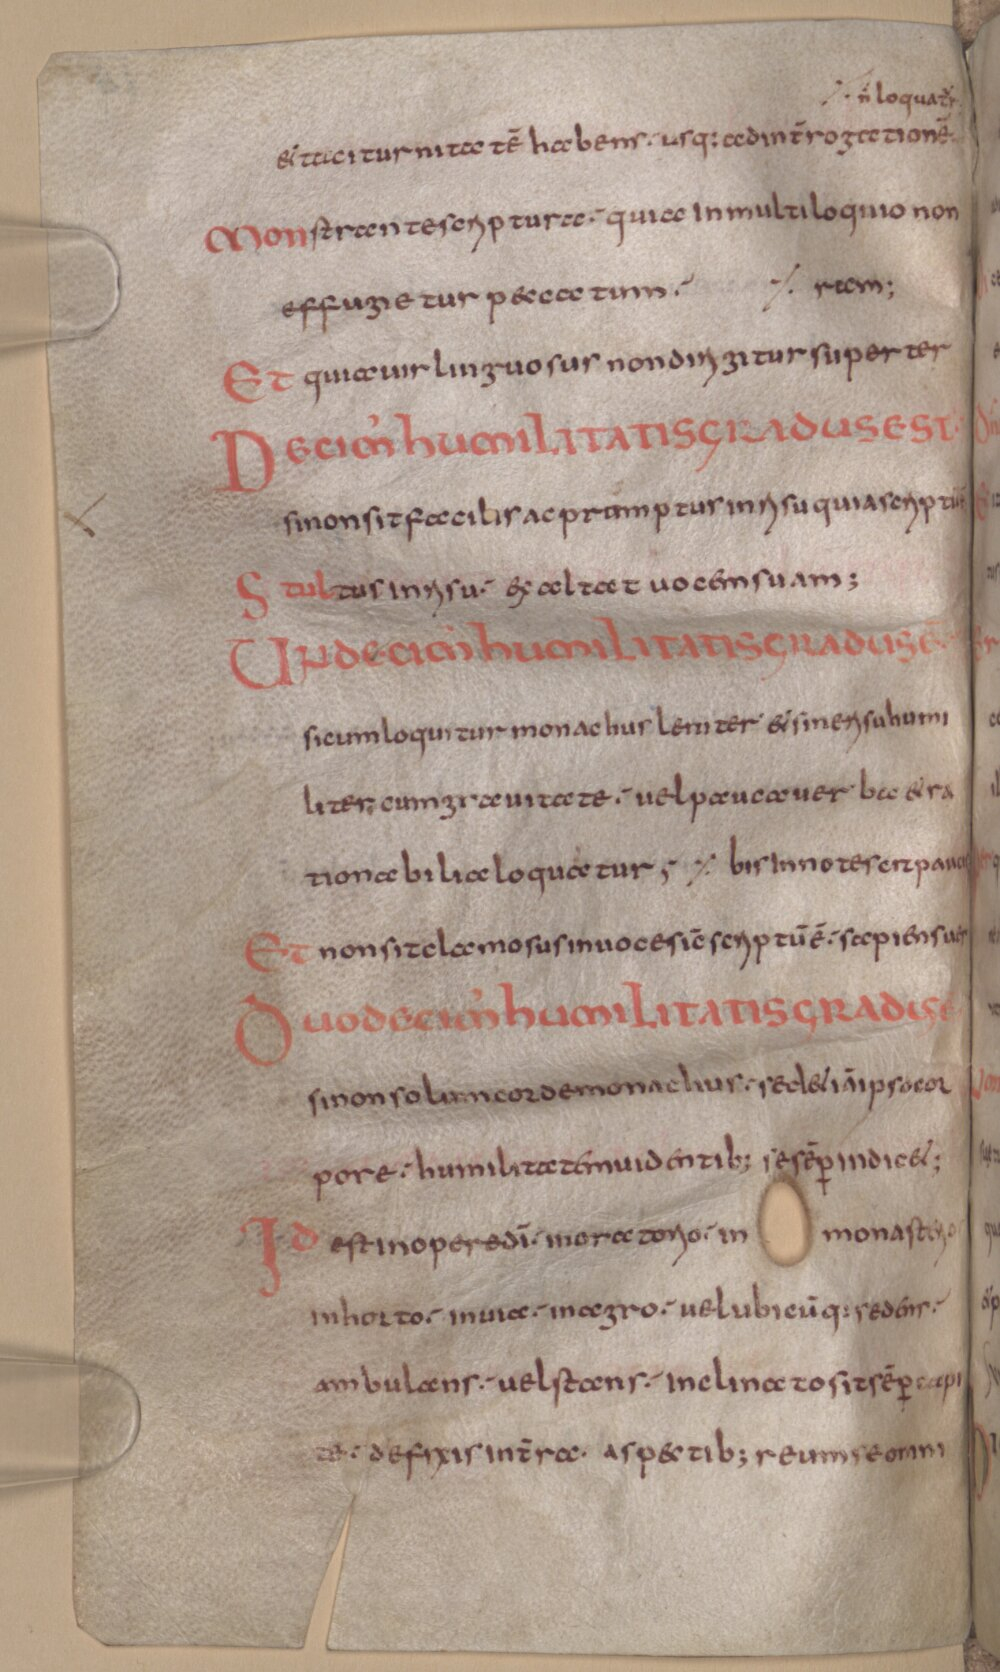 ⁒ n̄ loquat̄r
et taciturnitatē habens usq; ad int̄rogationē
Monstrante scriptura quia in multiloquio non
effugietur peccatum ⁒ ram;
Et quia vir linguosus non dirigitur super ter
Decim' humilitatis gradus est
si non sit facilis ac promptus in risu quia scriptū ē
Stultus in risu exaltat vocem suam;
Undecim' humilitatis gradus ē
si cum loquitur monachus leniter et sine risu humi
liter cum gravitate vel pauca verba et ra
tionabilia loquatur; ⁒ bis innotescit paucis
Et non sit clamosus in voce sic̄ scriptū ē sapiens ver
Duodecim' humilitatis gradus ē
si non solum corde monachus sed et iā ipso cor
pore humilitatem videntib; se sēp indicet;
Id est in opere dī in oratorio in monasterio
in horto in via in agro vel ubicūq; sedens
ambulans vel stans inclinato sit sēp capi
te defixis in t̄ra aspectib; reum se omni